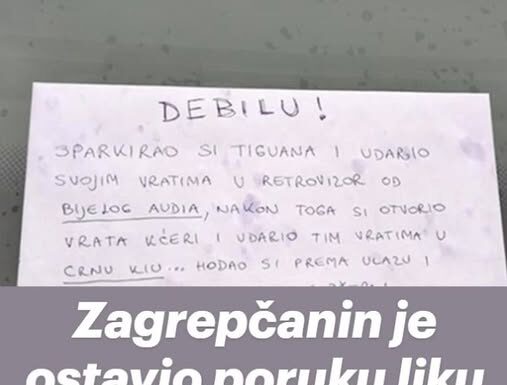 DEBILU!
SPARKIRAO SI TIGUANA I UDARIO
SVOJIM VRATIMA U RETROVIZOR OD
BIJELOG AUDIA, NAKON TOGA SI OTVORIO
VRATA KĆERI I UDARIO TIM VRATIMA U
CRNU KIU... HODAO SI PREMA ULAZU I
Zagrepčanin je
ostavio poruku liku